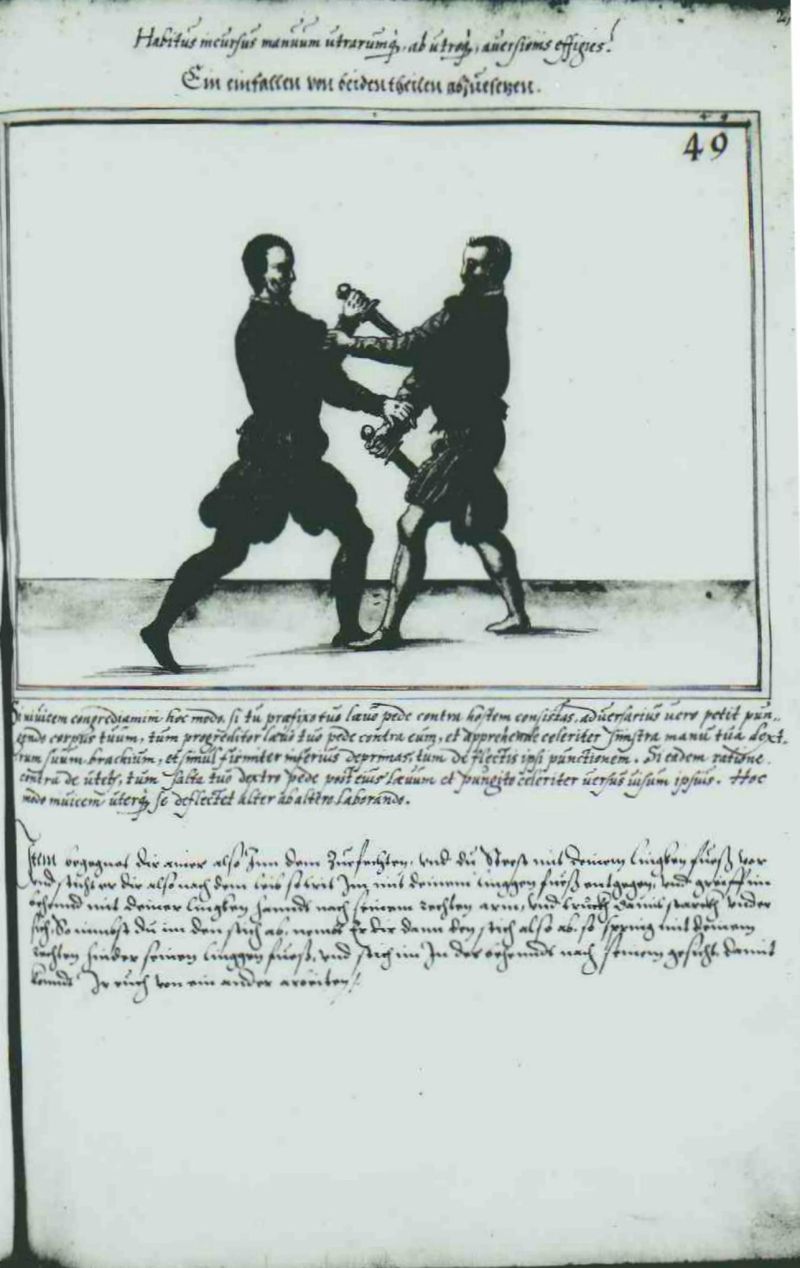 Habitus incursus manuum utrarumq̃, ab utroq̃, aversionis effigies.
Ein einfallen von beiden theilen abzuesetzen.
49
Si invicem congrediamini hoc modo, si tu præfixo tuo lævo pede contra hostem consistas, adversarius vero petit pun-
gendo corpus tuum, tum progreditor lævo tuo pede contra eum, et apprehende celeriter sinistra manu tua dext-
rum suum brachium, et simul firmiter inferius deprimas, tum deflectis ipsi punctionem. Si eadem ratione
contra te utetur, tum salta tuo dextro pede post eius lævum et pungito celeriter versus visum ipsius. Hoc
modo invicem uterq̃, se deflectet alter ab altero laborando.
Item begegnet dir ainer also Inn dem Zuefechten, vnd du steest mit deinem linggen fueß vor
vnd sticht er dir also nach dem leib so trit Im mit deinem linggen fueß entgegen, vnd greiff im
behennd mit deiner linggen hannd nach seinem rechten arm, vnd truckh damit starckh vnder
sich, So nimbst du im den stich ab, nembt Er dir dann den stich also ab, so spring mit deinem
rechten hinder seinen linggen fueß, vnd stich im In der behennd nach seinem gesicht, damit
kombt Ir euch von ein ander arbeiten